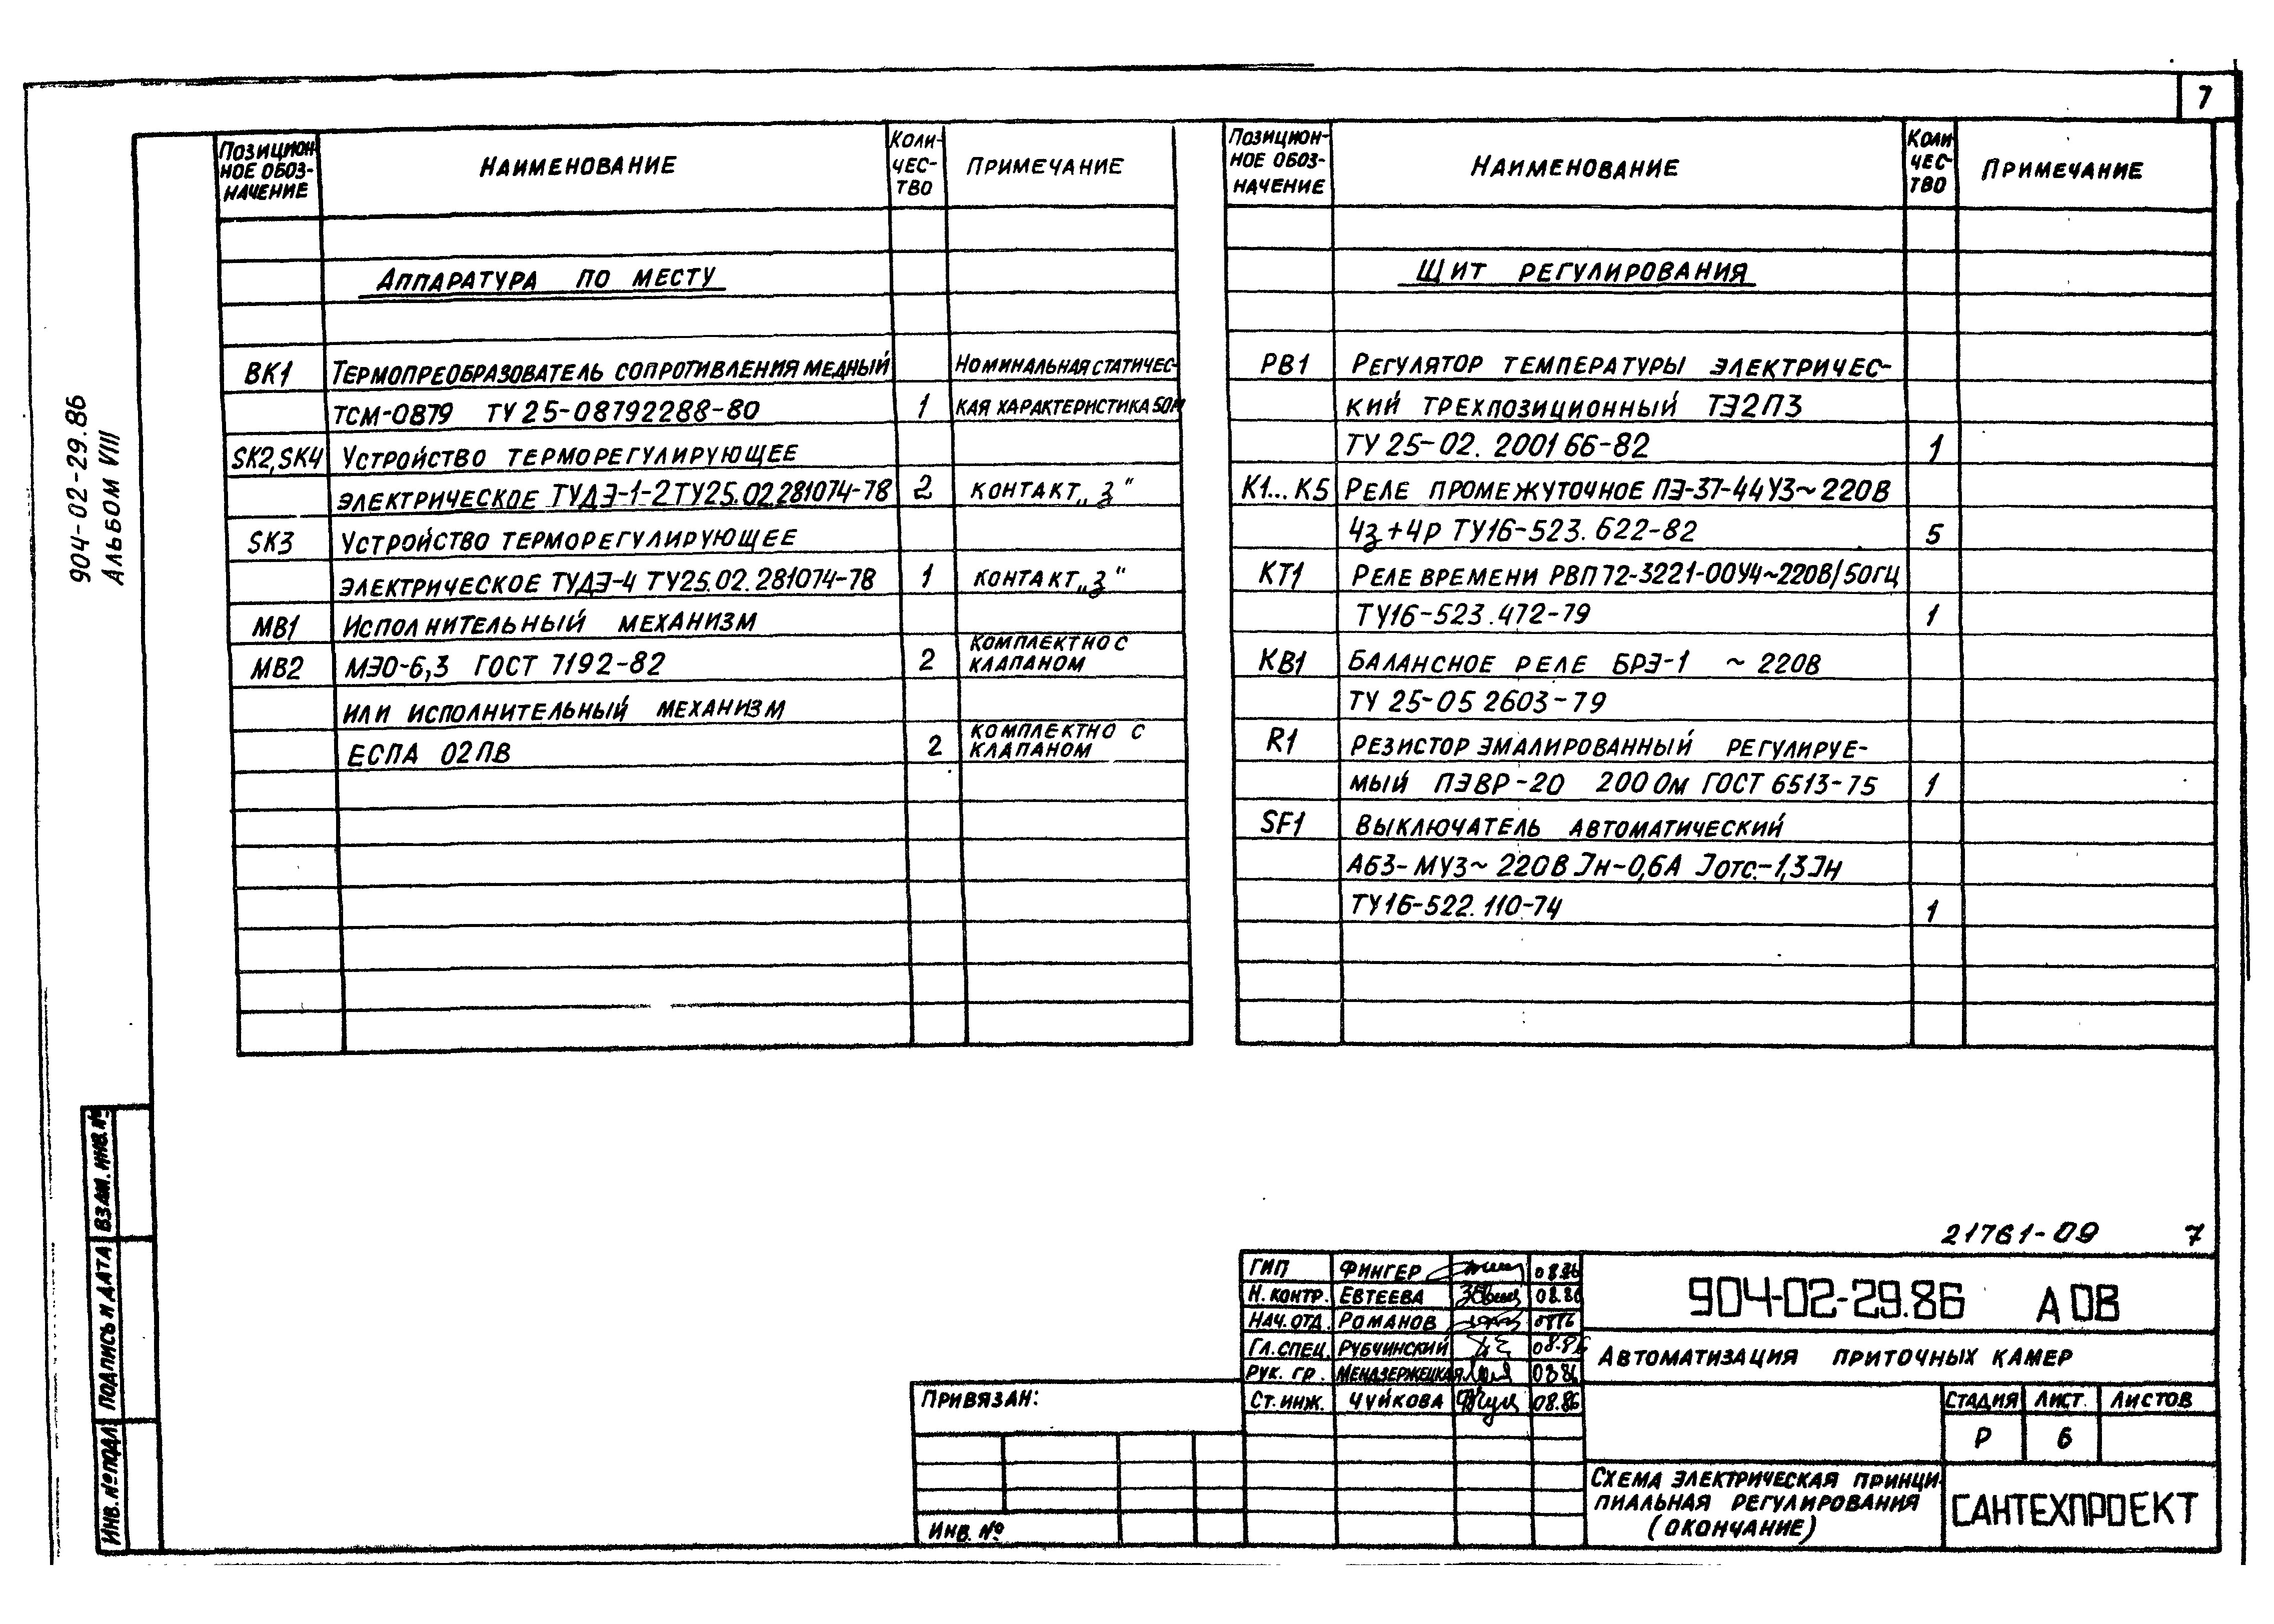 7
904-02-29.86
Альбом VIII
Позицион-
ное обоз-
начение
Наименование
Коли-
чес-
тво
Примечание
Аппаратура по месту
ВК1 Термопреобразователь сопротивления медный Номинальная статичес-
ТСМ-0879 ТУ 25-08792288-80 1 кая характеристика 50М
SK2, SK4 Устройство терморегулирующее
электрическое ТУДЭ-1-2 ТУ25.02.281074-78 2 контакт „з“
SK3 Устройство терморегулирующее
электрическое ТУДЭ-4 ТУ25.02.281074-78 1 контакт „з“
МВ1 Исполнительный механизм
МВ2 МЭО-6,3 ГОСТ 7192-82 2 комплектно с
клапаном
или исполнительный механизм
ЕСПА 02ПВ 2 комплектно с
клапаном
Позицион-
ное обоз-
начение
Наименование
Коли
чес-
тво
Примечание
Щит регулирования
РВ1 Регулятор температуры электричес-
кий трехпозиционный ТЭ2П3
ТУ 25-02.200166-82 1
К1...К5 Реле промежуточное ПЭ-37-44У3~220В
4з+4р ТУ16-523.622-82 5
КТ1 Реле времени РВП72-3221-00У4~220В/50Гц
ТУ16-523.472-79 1
КВ1 Балансное реле БРЭ-1 ~ 220В
ТУ 25-05 2603-79
R1 Резистор эмалированный регулируе-
мый ПЭВР-20 200 Ом ГОСТ 6513-75 1
SF1 Выключатель автоматический
А63-МУ3~ 220В Iн-0,6А Iотс.-1,3Iн
ТУ16-522.110-74 1
Взам. инв. №
Подпись и дата
Инв. № подл.
21761-09 7
ГИП Фингер 08.86
Н. контр. Евтеева 08.86
Нач. отд. Романов
Гл. спец. Рубчинский 08.86
Рук. гр. Мендзержецкая 08.86
Ст. инж. Чуйкова 08.86
904-02-29.86 АОВ
Автоматизация приточных камер
Стадия Лист. Листов
Р 6
Схема электрическая принци-
пиальная регулирования
(окончание)
САНТЕХПРОЕКТ
Привязан:
Инв. №